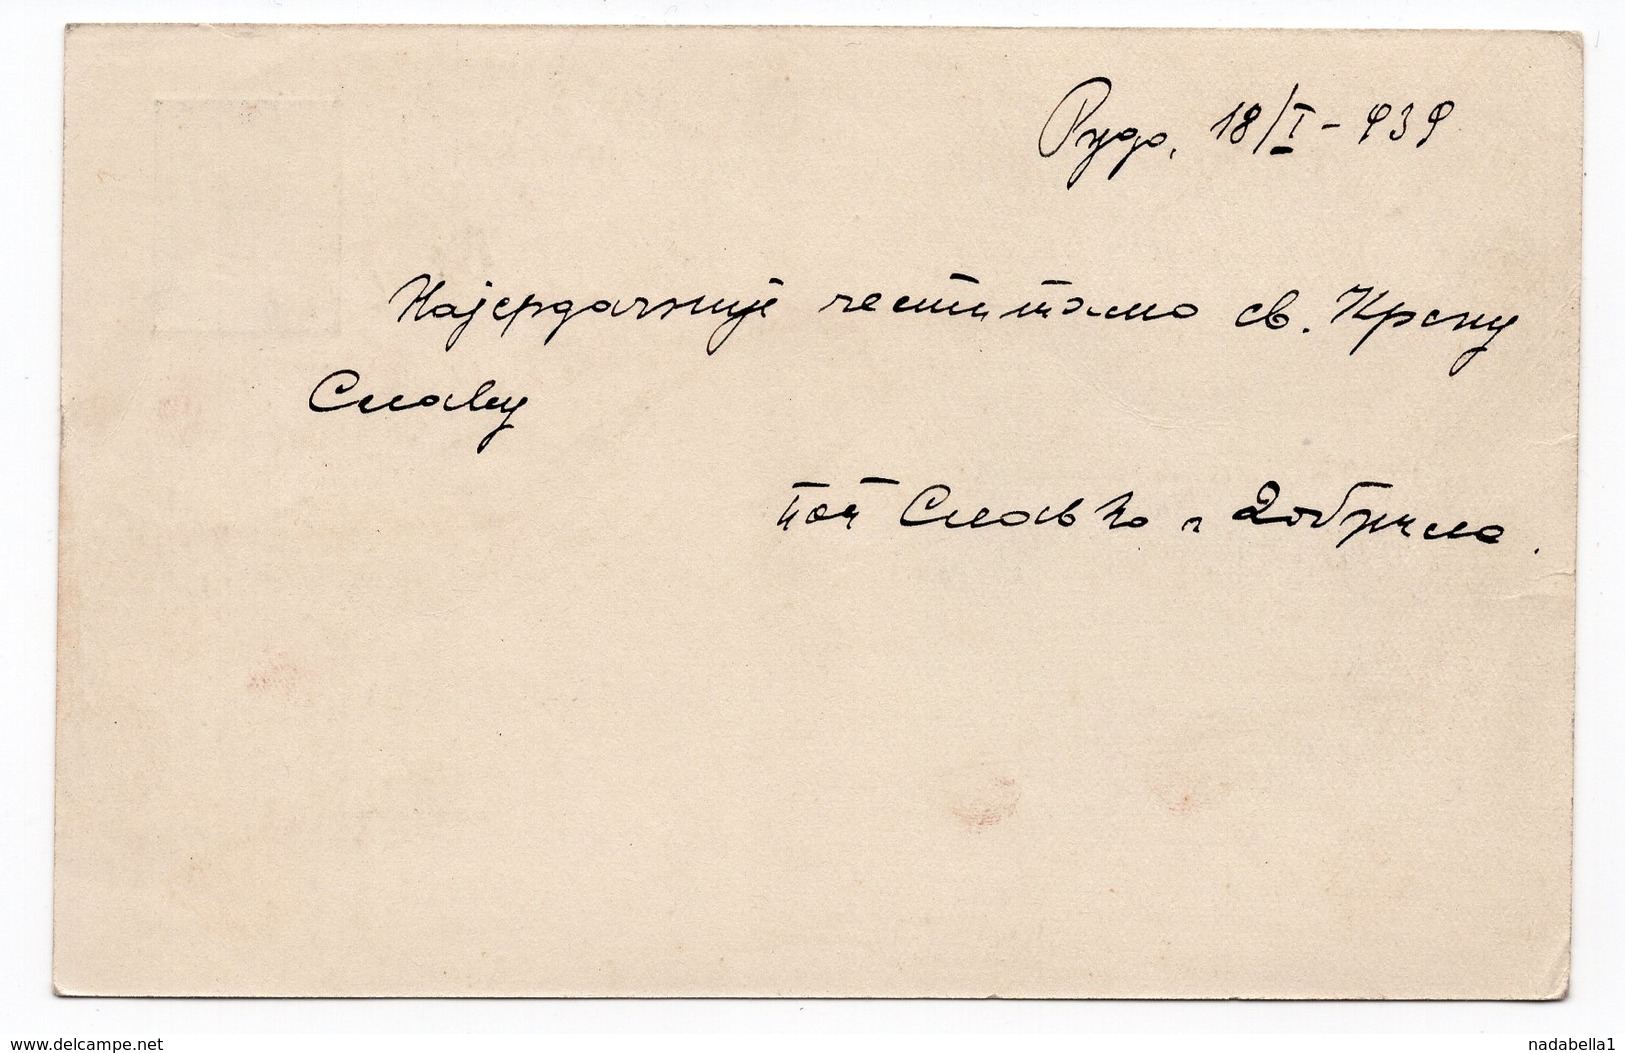 Рудо, 18/I - 939
Најсрдачније честитамо св. Крсну
Славу
поп Славко и Добрила.
www.delcampe.net
nadabella1